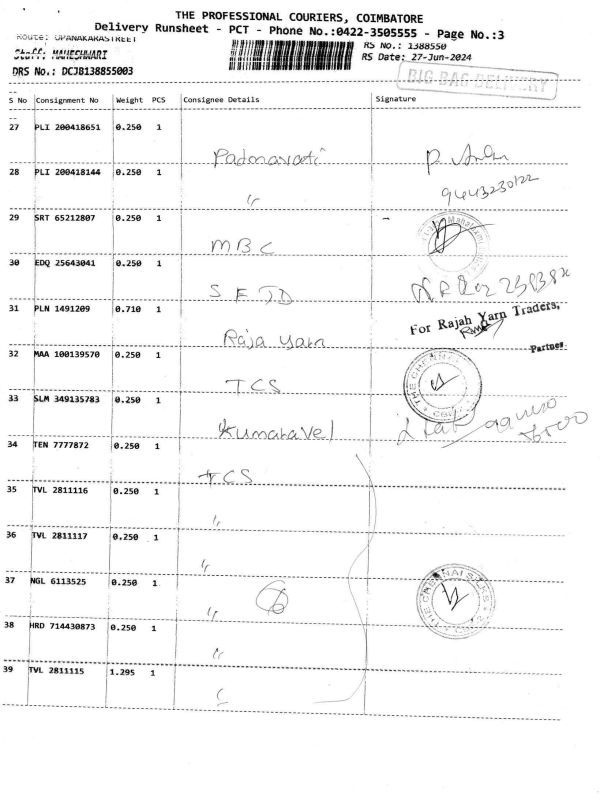 THE PROFESSIONAL COURIERS, COIMBATORE
Delivery Runsheet - PCT - Phone No.:0422-3505555 - Page No.:3
Route: OPANAKARASTREET
RS No.: 1388550
Staff: MAHESHWARI
RS Date: 27-Jun-2024
DRS No.: DCJB138855003
BIG BAG DELIVERY
S No Consignment No Weight PCS Consignee Details Signature
27 PLI 200418651 0.250 1
Padmavati
28 PLI 200418144 0.250 1
9443230122
〃
29 SRT 65212807 0.250 1
MBC
30 EDQ 25643041 0.250 1
31 PLN 1491209 0.710 1
For Rajah Yarn Traders,
Raja yarn
Partner
32 MAA 100139570 0.250 1
TCS
THE CHENNAI
33 SLM 349135783 0.250 1
Kumaravel
34 TEN 7777872 0.250 1
TCS
35 TVL 2811116 0.250 1
〃
36 TVL 2811117 0.250 1
〃
37 NGL 6113525 0.250 1
THE CHENNAI SILKS
〃
38 HRD 714430873 0.250 1
〃
39 TVL 2811115 1.295 1